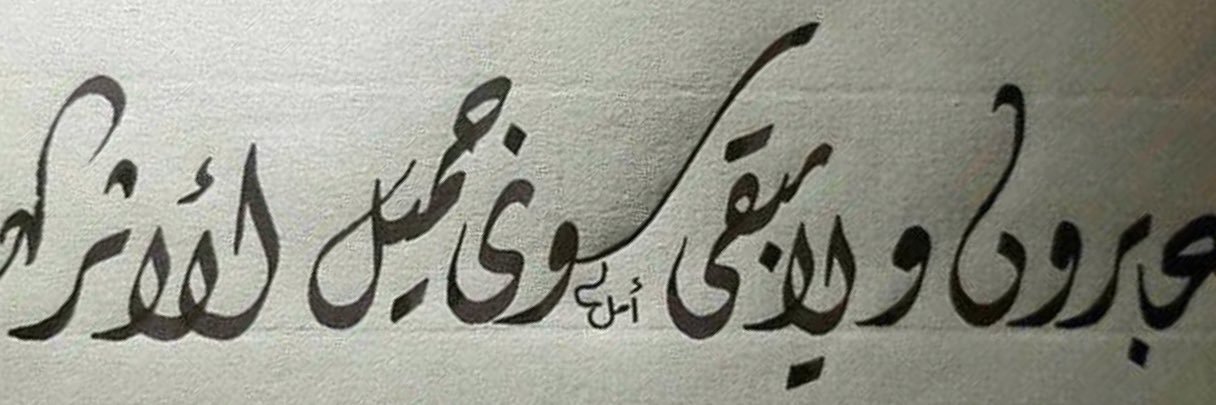 عابرون ولا يبقى سوى جميل الأثر
أمل